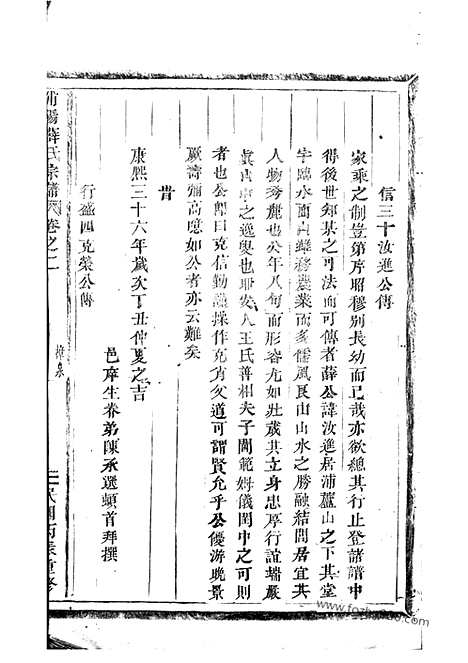 信三十汝進公傳
家乘之制豈第序昭穆別長幼而已哉亦欲總其行止登諸譜中
得後世知某之可法而可傳者薛公諱汝進居浦蘆山之下其堂
宇臨水面山雖務農業而多儒風良由山水之勝融結間居宜其
人物秀麗也公年八旬而形容尤如壯歲其立身忠厚行誼端嚴
真古中之逸叟也耶安人王氏善相夫子閫範姆儀閨中之可則
者也公郎曰克信勤謹操作克肖父道可謂賢允乎公優游晚景
厥壽彌高噫如公者亦云難矣
旹
康熙三十六年歲次丁丑仲夏之吉
邑庠生眷弟陳承選頓首拜撰
行盛四克榮公傳
浦陽薛氏宗譜 卷之二